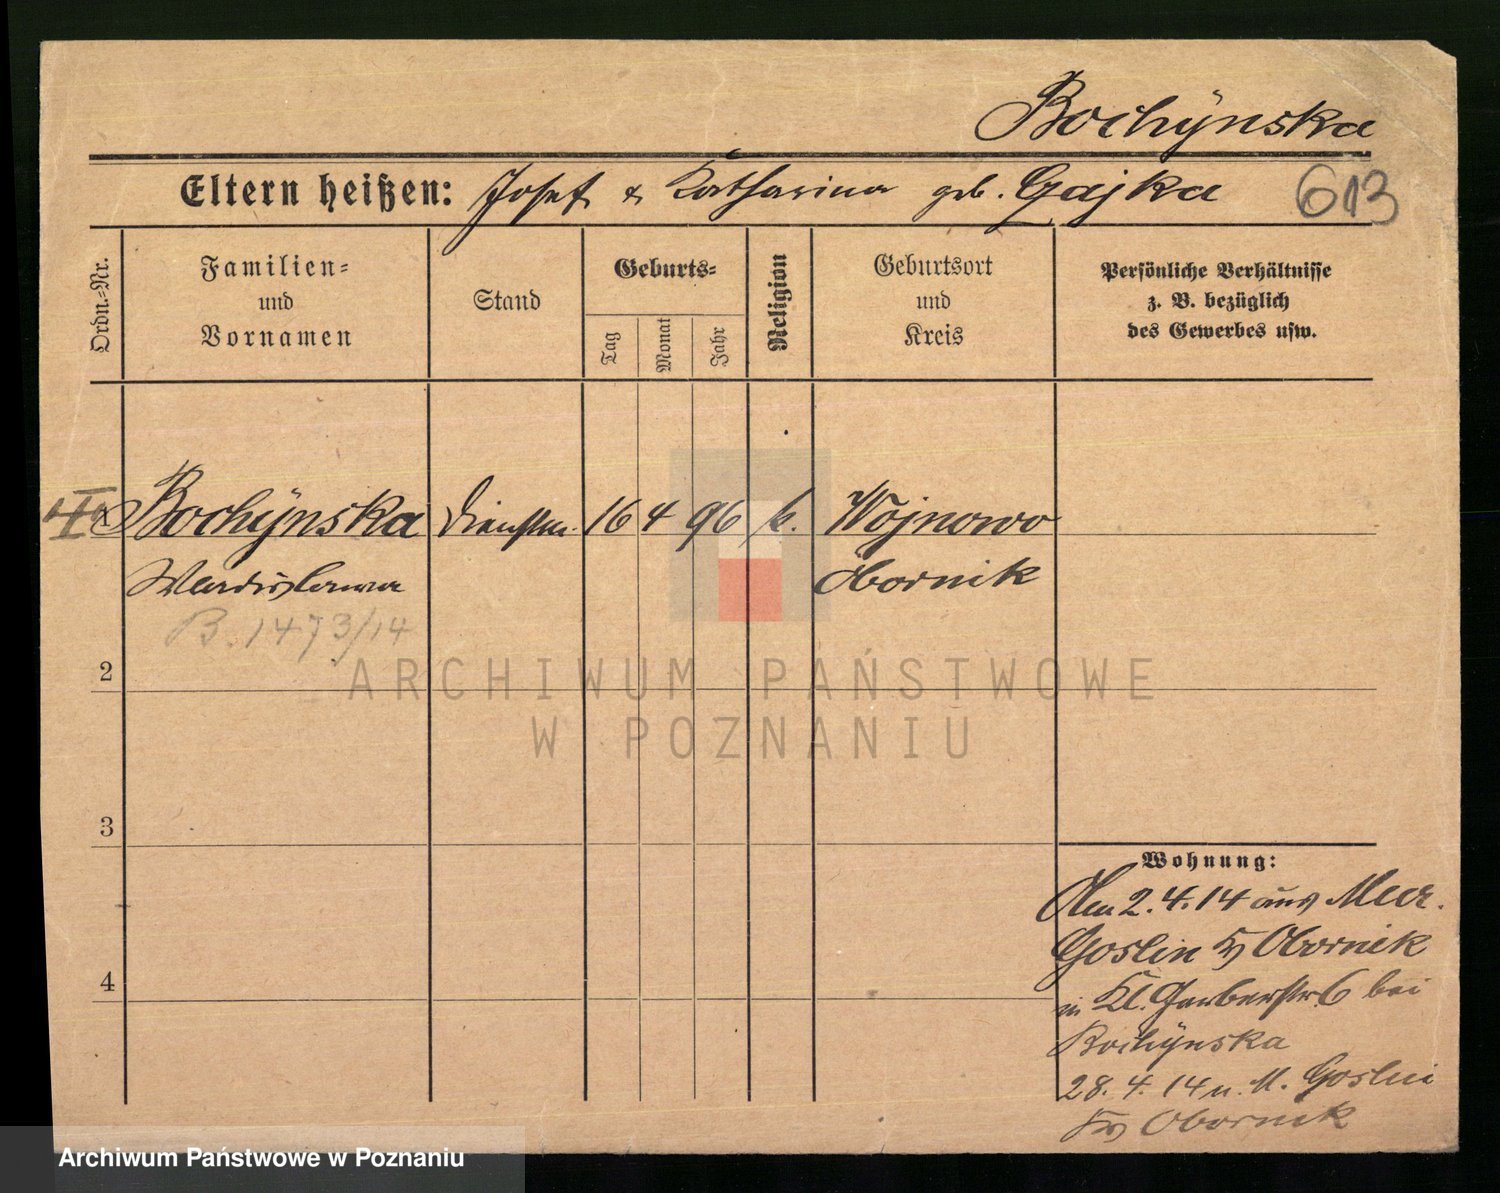 Bochÿnska
Eltern heißen: Josef & Katharina geb. Gajka 613
Ordn.-Nr.
Familien-
und
Vornamen
Stand
Geburts-
Tag
Monat
Jahr
Religion
Geburtsort
und
Kreis
Persönliche Verhältnisse
z. B. bezüglich
des Gewerbes usw.
Bochÿnska Dienstm. 16 4 96 k. Wojnowo
Wladislawa Obornik
B. 1473/14
2
3
4
Wohnung:
2.4.14 aus Mur.
Goslin Obornik
in Kl. Gerberstr. 6 bei
Bochÿnska
28.4.14 n. M. Goslin
Obornik
ARCHIWUM PAŃSTWOWE
W POZNANIU
Archiwum Państwowe w Poznaniu